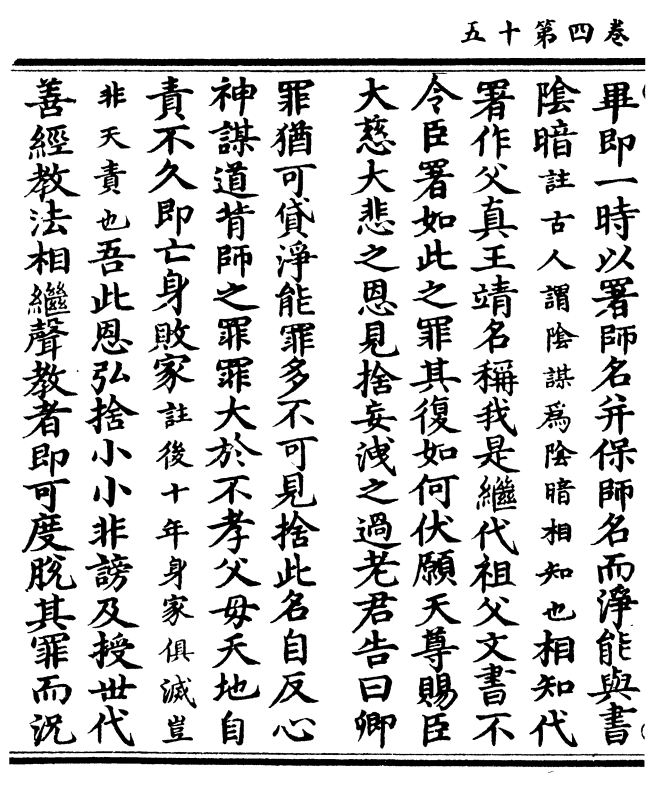 卷四第十五
畢即一時以署師名并保師名而淨能與書
陰暗註古人謂陰謀為陰暗相知也相知代
署作父真王靖名稱我是繼代祖父文書不
令臣署如此之罪其復如何伏願天尊賜臣
大慈大悲之恩見捨妄洩之過老君告曰卿
罪猶可貸淨能罪多不可見捨此名自反心
神謀道背師之罪罪大於不孝父母天地自
責不久即亡身敗家註後十年身家俱滅豈
非天責也吾此恩弘捨小小非謗及授世代
善經教法相繼聲教者即可度脫其罪而況